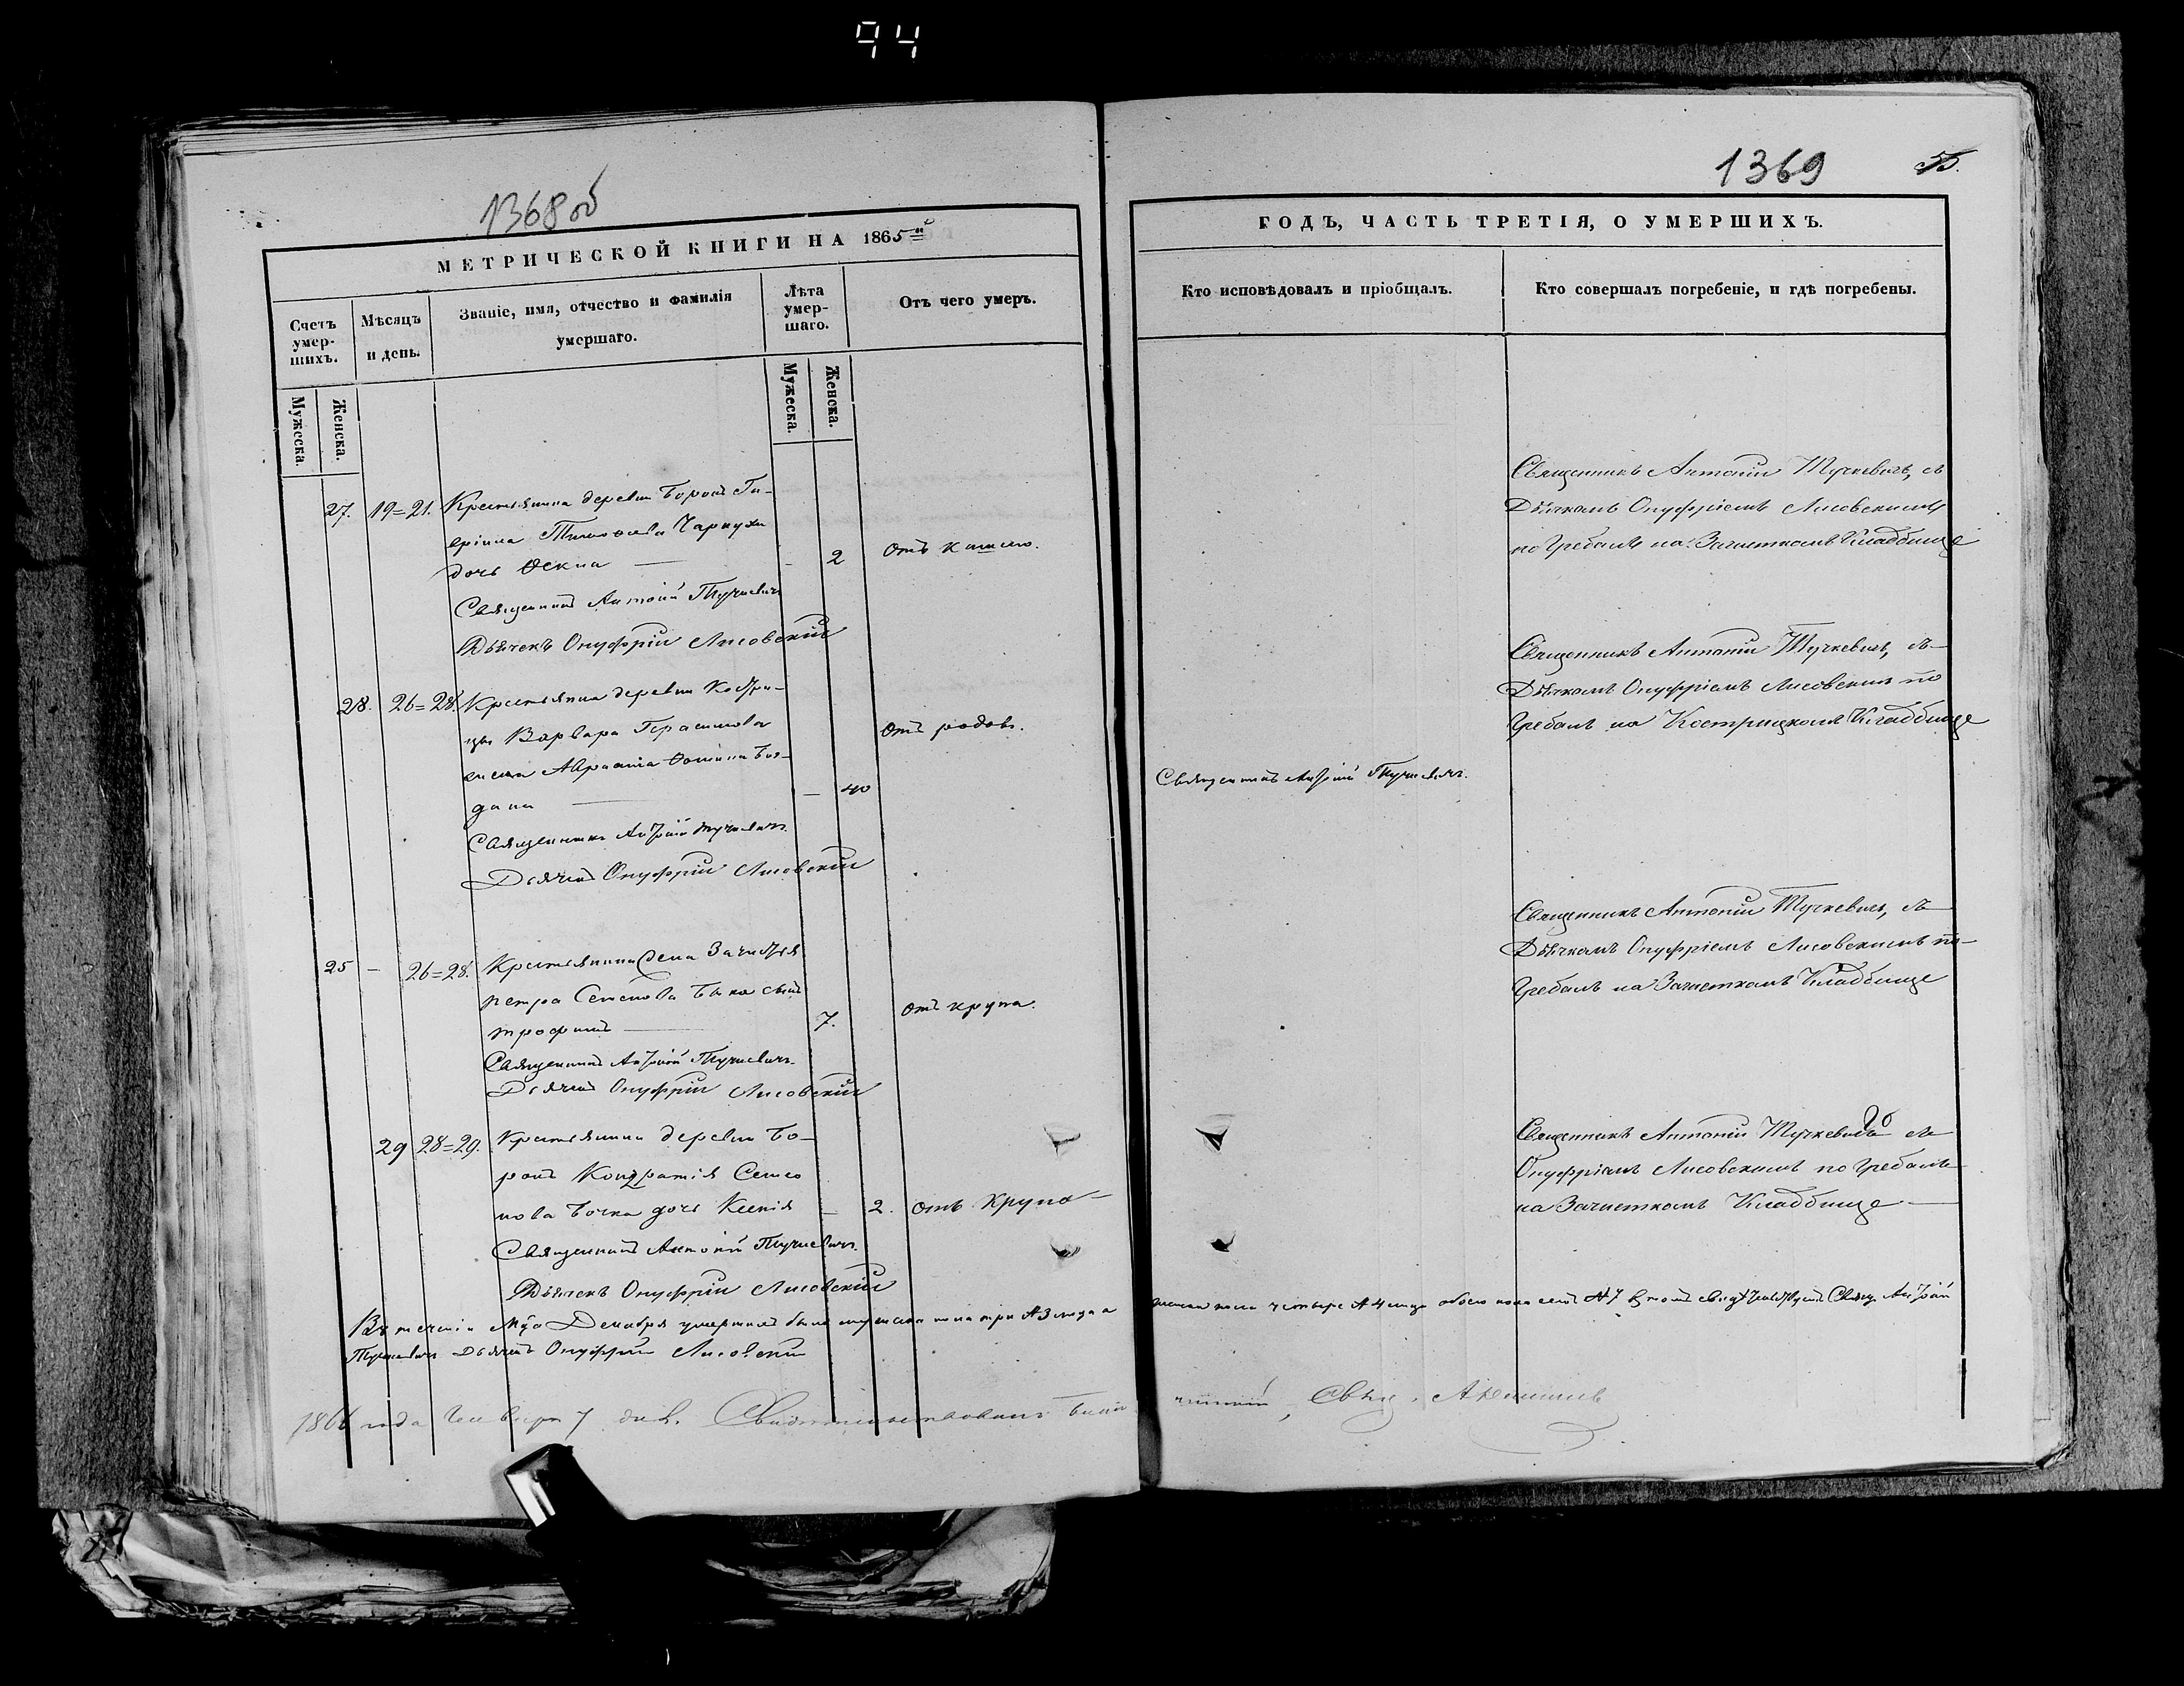 94
1368 об
МЕТРИЧЕСКОЙ КНИГИ НА 1865й
Счетъ умершихъ.
Мѣсяцъ и день.
Званіе, имя, отчество и фамилія умершаго.
Лѣта умершаго.
Отъ чего умеръ.
Мужеска.
Женска.
Мужеска.
Женска.
27. 19=21. Крестьянина деревни Боронъ
Чаркухи
дочь Ѳекла — - 2 отъ кашлю.
Священникъ Антоній Тучкевичъ
Дьячекъ Онуфрій Лисовскій
28. 26=28. Крестьянина деревни Костри-
цы Варвара Герасимова
Аврамія Фомина
— — 40 отъ родовъ.
Священникъ Антоній Тучкевичъ
Дьячекъ Онуфрій Лисовскій
25 - 26=28. Крестьянина Села Зачистья
Петра Семенова Быка сынъ
Трофимъ — 7. отъ крупа.
Священникъ Антоній Тучкевичъ
Дьячекъ Онуфрій Лисовскій
29 28=29. Крестьянина деревни Бо-
ронъ Кондратія Семе
нова Бочка дочь Ксенія — 2. отъ крупа -
Священникъ Антоній Тучкевичъ
Дьячекъ Онуфрій Лисовскій
Въ теченіи Мца Декабря умершихъ было мужеска пола три №3 лица а
Тучкевичъ Дьячекъ Онуфрій Лисовскій
1866 года Генваря 7 дня. Свидетельствовалъ
1369
55.
ГОДЪ, ЧАСТЬ ТРЕТІЯ, О УМЕРШИХЪ.
Кто исповѣдовалъ и пріобщалъ.
Кто совершалъ погребеніе, и гдѣ погребены.
Священникъ Антоній Тучкевичъ, съ
Дьячкомъ Онуфріемъ Лисовскимъ
погребалъ на Зачисткомъ Кладбище
Священникъ Антоній Тучкевичъ, съ
Дьячкомъ Онуфріемъ Лисовскимъ по
гребалъ на Кострицкомъ Кладбище
Священникъ Антоній Тучкевичъ.
Священникъ Антоній Тучкевичъ, съ
Дьячкомъ Онуфріемъ Лисовскимъ по-
гребалъ на Зачисткомъ Кладбище
Священникъ Антоній Тучкевичъ съ
Онуфріемъ Лисовскимъ погребалъ
на Зачисткомъ Кладбище —
женска пола четыре №4 лица обоего пола семь №7 въ томъ Свящ. Антоній